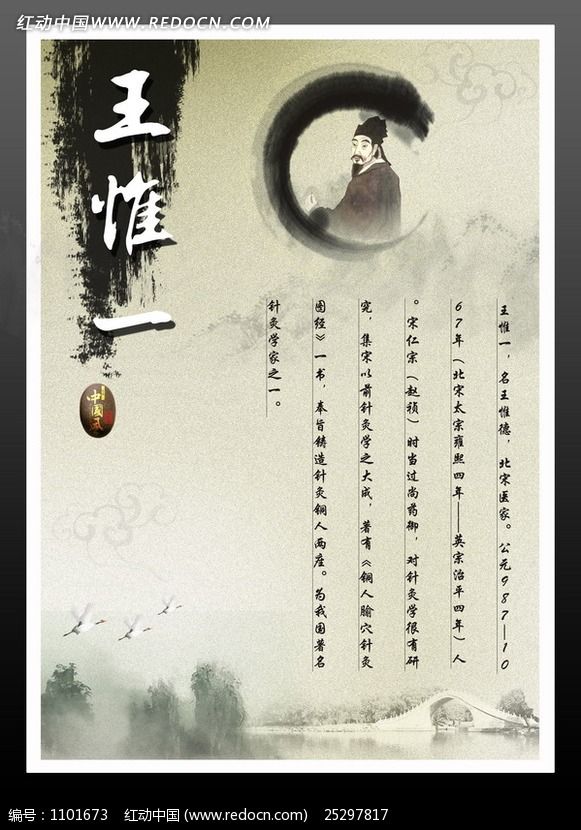 红动中国 www.REDOCN.com
王惟一
中國风
王惟一，名王惟德，北宋医家。公元987—10
67年（北宋太宗雍熙四年——英宗治平四年）人
。宋仁宗（赵祯）时当过尚药御，对针灸学很有研
究，集宋以前针灸学之大成，著有《铜人腧穴针灸
图经》一书，奉旨铸造针灸铜人两座。为我国著名
针灸学家之一。
编号：1101673 红动中国 (www.redocn.com) 25297817